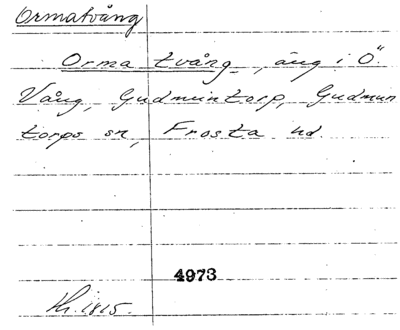 Ormatvång
Orma tvång, äng i Ö.
Vång, Gudmuntorp, Gudmun
torps sn, Frosta hd
4973
1815.